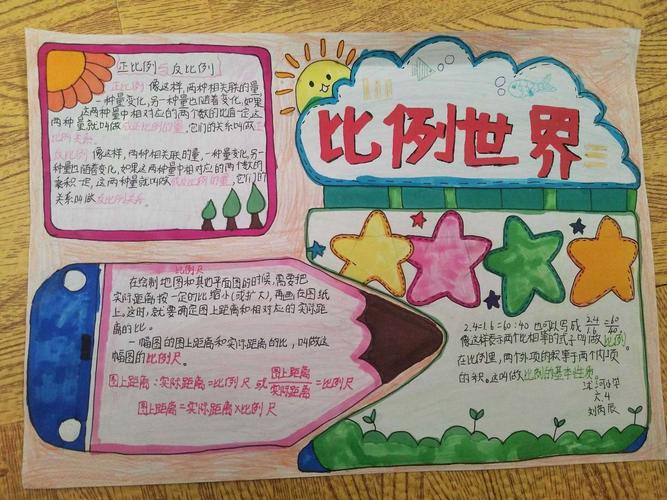 比例世界
正比例与反比例
正比例 像这样,两种相关联的量,
一种量变化,另一种量也随着变化,如果
这两种量中相对应的两个数的比值一定,这
两种量就叫做成正比例的量,它们的关系叫做正
比例关系。
反比例 像这样,两种相关联的量,一种量变化,另一
种量也随着变化,如果这两种量中相对应的两个数的
乘积一定,这两种量就叫做成反比例的量,它们的
关系叫做反比例关系。
比例尺
在绘制地图和其他平面图的时候,需要把
实际距离按一定的比缩小(或扩大),再画在图纸
上。这时,就要确定图上距离和相对应的实际距
离的比。
一幅图的图上距离和实际距离的比,叫做这
幅图的比例尺。
图上距离:实际距离=比例尺 或 图上距离/实际距离=比例尺
图上距离=实际距离×比例尺
2.4:1.6=60:40 也可以写成 2.4/1.6=60/40
像这样表示两个比相等的式子叫做比例
在比例里,两个外项的积等于两个内项
的积。这叫做比例的基本性质。
六.4